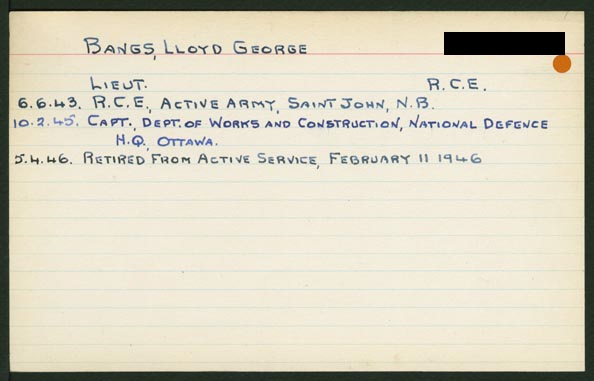 BANGS, LLOYD GEORGE
LIEUT. R.C.E.
6.6.43. R.C.E., ACTIVE ARMY, SAINT JOHN, N.B.
10.2.45. CAPT., DEPT. OF WORKS AND CONSTRUCTION, NATIONAL DEFENCE
H.Q., OTTAWA.
5.4.46. RETIRED FROM ACTIVE SERVICE, FEBRUARY 11 1946